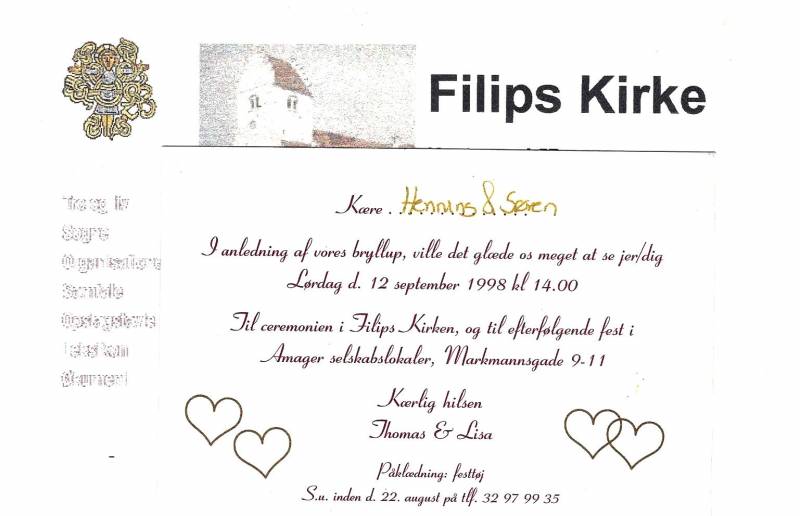 Filips Kirke
Kære Henning & Søren
I anledning af vores bryllup, ville det glæde os meget at se jer/dig
Lørdag d. 12 september 1998 kl 14.00
Til ceremonien i Filips Kirken, og til efterfølgende fest i
Amager selskabslokaler, Markmannsgade 9-11
Kærlig hilsen
Thomas & Lisa
Påklædning: festtøj
S.u. inden d. 22. august på tlf. 32 97 99 35
Tro og liv
Sogne
Organisationer
Samfund